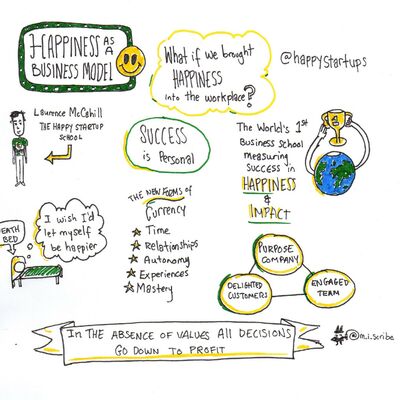 HAPPINESS AS A
BUSINESS MODEL
What if we brought
HAPPINESS
into the workplace?
@happystartups
Lawrence McCahill
THE HAPPY STARTUP
SCHOOL
SUCCESS
is Personal
The World's 1st
Business school
measuring
Success in
HAPPINESS
&
IMPACT
I wish I'd
let myself
be happier
DEATH
BED
THE NEW FORMS of
Currency
Time
Relationships
Autonomy
Experiences
Mastery
PURPOSE
COMPANY
DELIGHTED
CUSTOMERS
ENGAGED
TEAM
IN THE ABSENCE OF VALUES All DECISIONS
GO DOWN TO PROFIT
@m.i.scribe